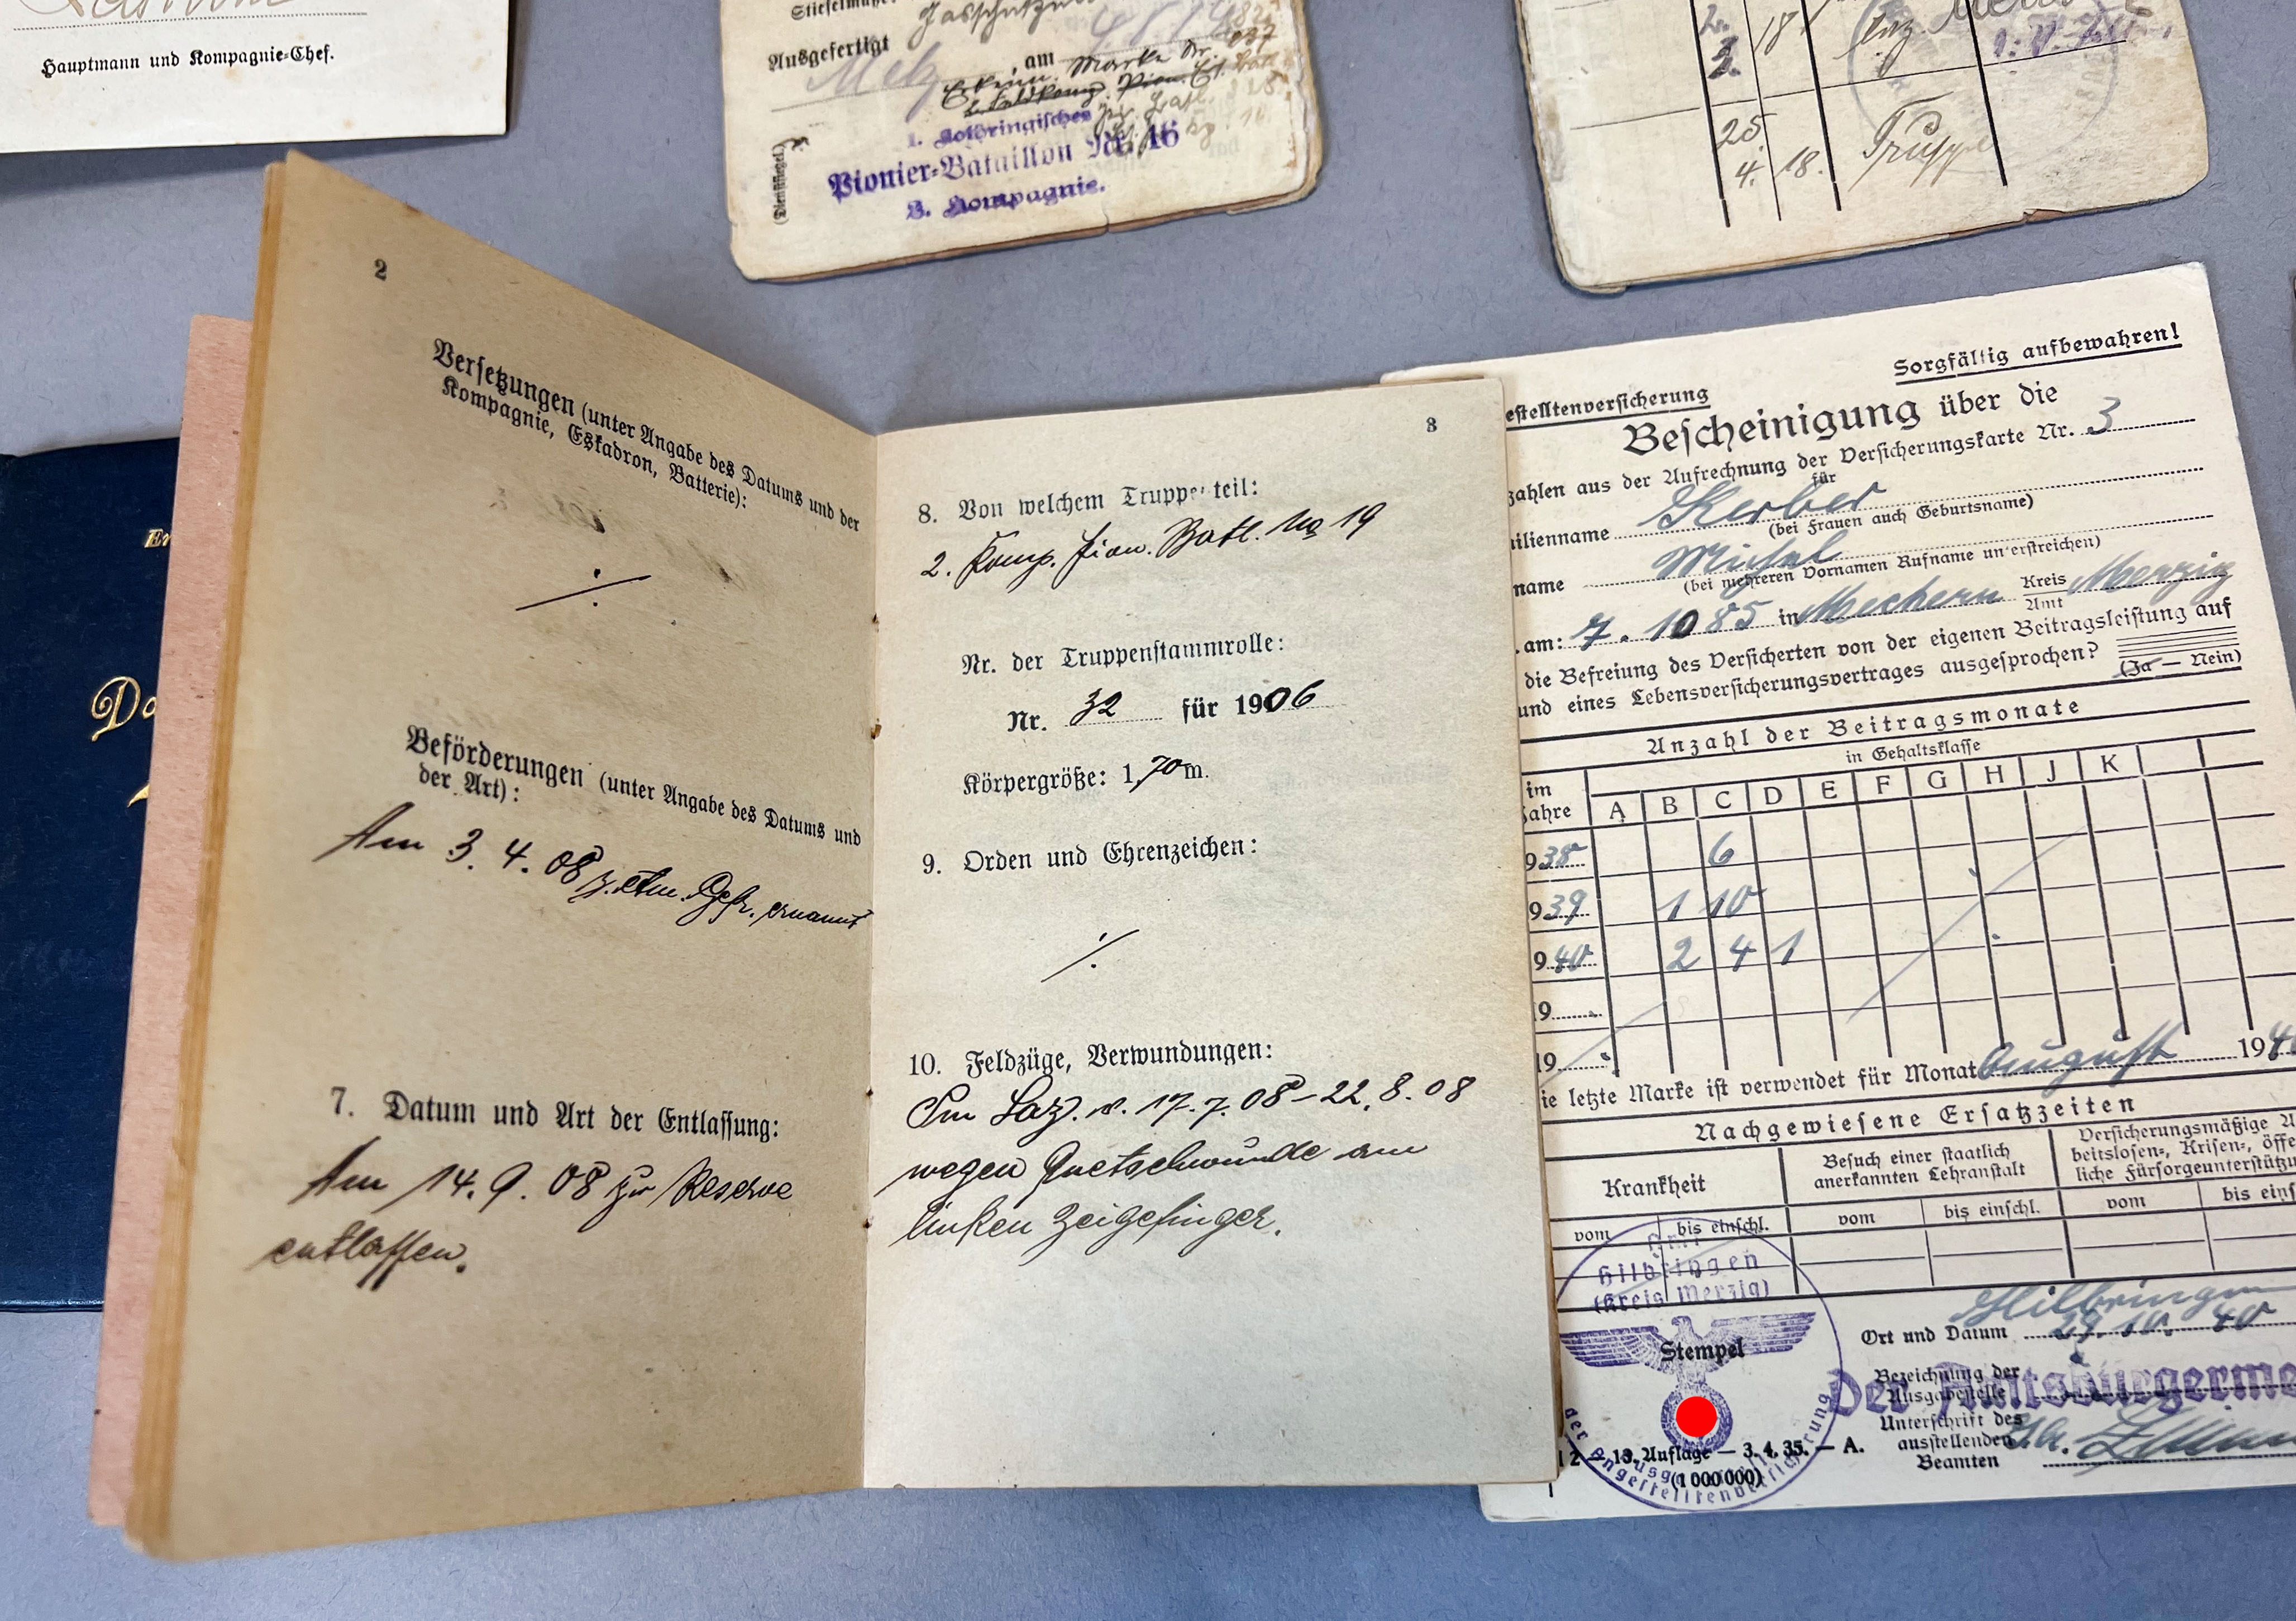 Hauptmann und Kompagnie-Chef.
Ausgefertigt
Metz, am
Erkenn. Marke Nr.
1. Lothringisches
Pionier-Bataillon Nr. 16
3. Kompagnie.
(Dienstsiegel.)
25.
4. 18.
2
Versetzungen (unter Angabe des Datums und der
Kompagnie, Eskadron, Batterie):
Beförderungen (unter Angabe des Datums und
der Art):
Am 3. 4. 08 z. etm. Gefr. ernannt
7. Datum und Art der Entlassung:
Am 14. 9. 08 zur Reserve
entlassen.
3
8. Von welchem Truppenteil:
2. Komp. Pion. Batl. No 19
Nr. der Truppenstammrolle:
Nr. 32 für 1906
Körpergröße: 1,70 m.
9. Orden und Ehrenzeichen:
10. Feldzüge, Verwundungen:
Im Laz. v. 17. 7. 08 – 22. 8. 08
wegen Quetschwunde am
linken Zeigefinger.
Sorgfältig aufbewahren!
estelltenversicherung
Bescheinigung über die
zahlen aus der Aufrechnung der Versicherungskarte Nr. 3
für
ilienname Kerber
(bei Frauen auch Geburtsname)
name Michel
(bei mehreren Vornamen Rufname unterstreichen)
am: 7. 10 85 in Mechern Kreis Merzig
Amt
die Befreiung des Versicherten von der eigenen Beitragsleistung auf
und eines Lebensversicherungsvertrages ausgesprochen? (Ja — Nein)
Anzahl der Beitragsmonate
in Gehaltsklasse
im
Jahre A B C D E F G H J K
938 6
939 1 10
940 2 4 1
19
19
ie letzte Marke ist verwendet für Monat August 194
Nachgewiesene Ersatzzeiten
Krankheit
Besuch einer staatlich
anerkannten Lehranstalt
Versicherungsmäßige A
beitslosen-, Krisen-, öffe
liche Fürsorgeunterstützu
vom bis einschl. vom bis einschl. vom bis eins
Hilbringen
(Kreis Merzig)
Stempel
Ort und Datum Hilbringen
29. 10. 40
Bezeichnung der
Ausgabestelle
Der Amtsbürgerme
Unterschrift des
ausstellenden
Beamten
12 — 13. Auflage — 3. 4. 35. — A.
(1 000 000)
der Angestelltenversicherung